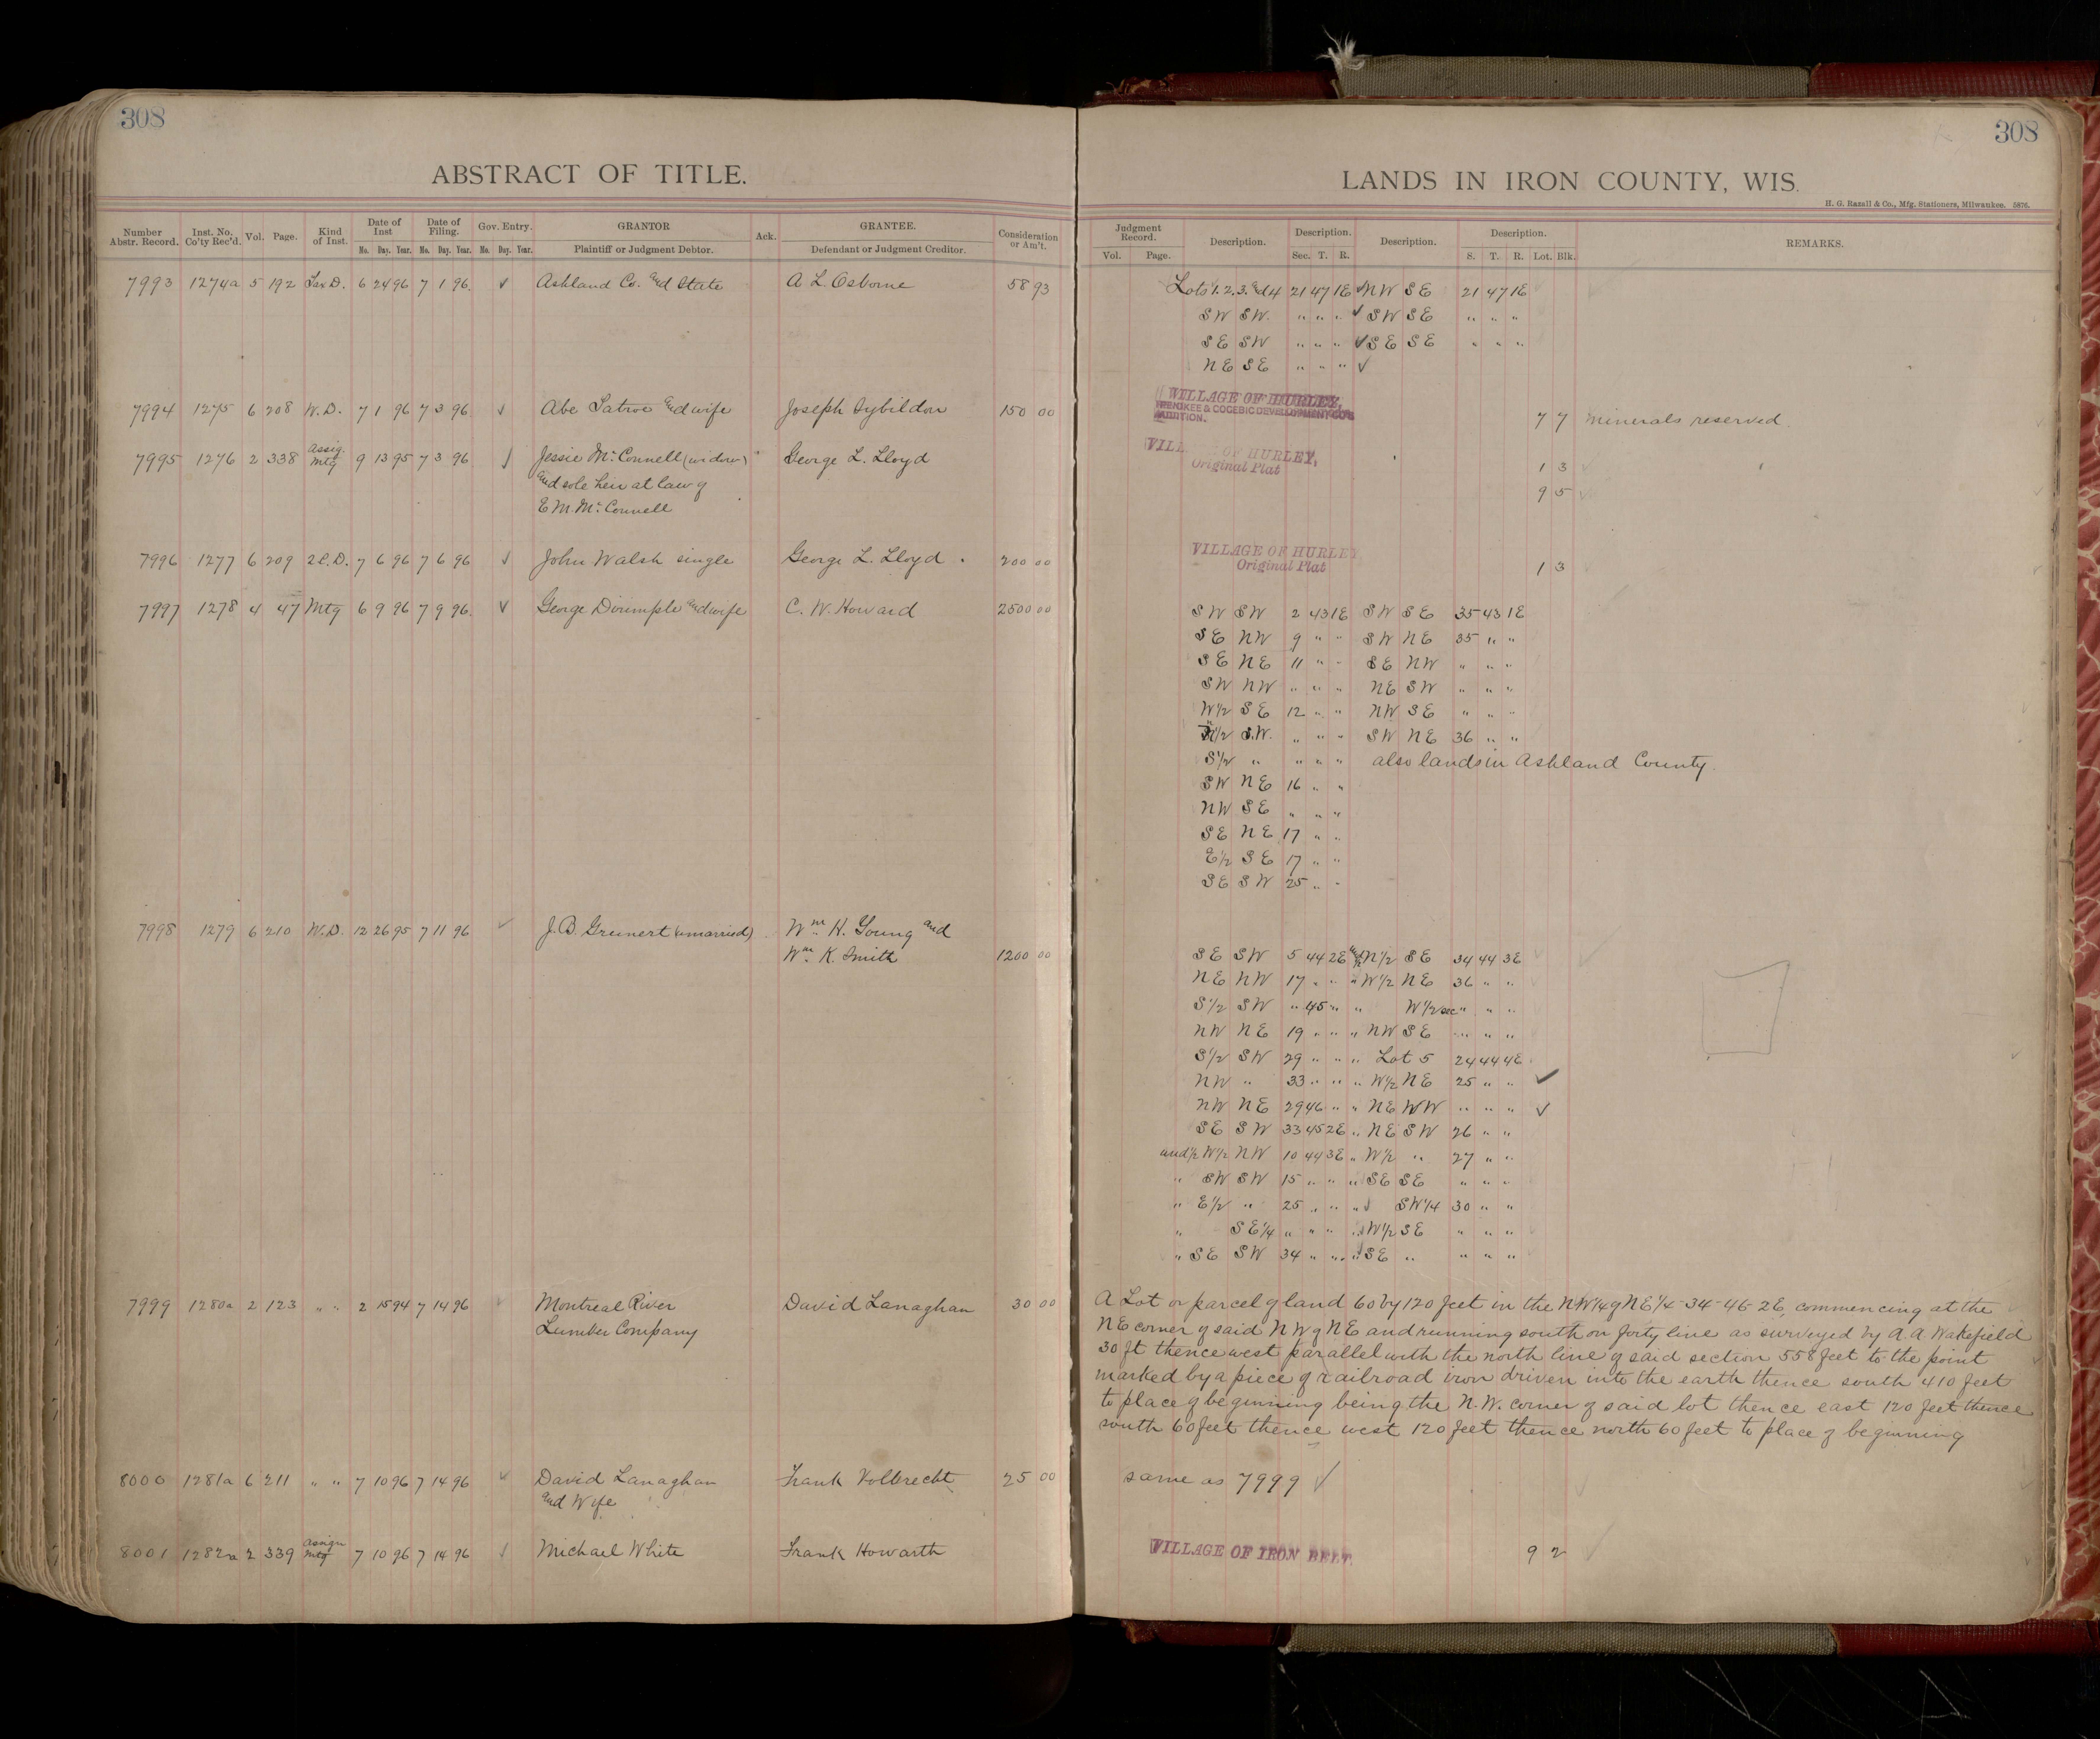 308
ABSTRACT OF TITLE.
Number Abstr. Record. Inst. No. Co'ty Rec'd. Vol. Page. Kind of Inst. Date of Inst Date of Filing. Gov. Entry. GRANTOR Ack. GRANTEE. Consideration or Am't.
Mo. Day. Year. Mo. Day. Year. Mo. Day. Year. Plaintiff or Judgment Debtor. Defendant or Judgment Creditor.
7993 1274a 5 192 Tax D. 6 24 96 7 1 96. ✓ Ashland Co. and State A L. Osborne 58 93
7994 1275 6 208 W.D. 7 1 96 7 3 96. ✓ Abe and wife Joseph 150 00
7995 1276 2 338 Assig. Mtg 9 13 95 7 3 96. ✓ Jessie Mc Connell (widow) George L. Lloyd
and sole heir at law of
E M. Mc Connell
7996 1277 6 209 2.C.D. 7 6 96 7 6 96 ✓ John Walsh single George L. Lloyd 200 00
7997 1278 4 47 Mtg 6 9 96 7 9 96. ✓ George and wife C. W. Howard 2500 00
7998 1279 6 210 W.D. 12 26 95 7 11 96 ✓ J.B. Greinert (unmarried) Wm H. Young and
Wm K. Smith 1200 00
7999 1280a 2 123 " " 2 15 94 7 14 96 ✓ Montreal River David Lanaghan 30 00
Lumber Company
8000 1281a 6 211 " " 7 10 96 7 14 96 ✓ David Lanaghan Frank Volbrecht 25 00
and Wife
8001 1282a 2 339 Assign Mtg 7 10 96 7 14 96 ✓ Michael White Frank Howarth
308
LANDS IN IRON COUNTY, WIS.
H. G. Razall & Co., Mfg. Stationers, Milwaukee. 5876.
Judgment Record. Description. Description. Description. Description. REMARKS.
Vol. Page. Sec. T. R. S. T. R. Lot. Blk.
Lots 1. 2. 3. and 4 21 47 1E ✓ NW SE 21 47 1E
SW SW. " " " ✓ SW SE " " "
SE SW " " " ✓ SE SE " " "
NE SE " " " ✓
VILLAGE OF HURLEY,
& GOGEBIC DEVELOPMENT CO'S
ADDITION. 7 7 Minerals reserved.
VILLAGE OF HURLEY,
Original Plat 1 3
9 5
VILLAGE OF HURLEY
Original Plat 1 3
SW SW 2 43 1E SW SE 35 43 1E
SE NW 9 " " SW NE 35 " "
SE NE 11 " " SE NW " " "
SW NW " " " NE SW " " "
W½ SE 12 " " NW SE " " "
N½ S.W. " " " SW NE 36 " "
S½ " " " " also lands in Ashland County.
SW NE 16 " "
NW SE " " "
SE NE 17 " "
E½ SE 17 " "
SE SW 25 " "
SE SW 5 44 2E und½ N½ SE 34 44 3E
NE NW 17 " " " W½ NE 36 " "
S½ SW " 45 " " W½ sec " " "
NW NE 19 " " " NW SE " " "
S½ SW 29 " " " Lot 5 24 44 4E
NW " 33 " " " W½ NE 25 " " ✓
NW NE 29 46 " " NE NW " " " ✓
SE SW 33 45 2E " NE SW 26 " "
und½ W½ NW 10 44 3E " W½ " 27 " "
" SW SW 15 " " " SE SE " " "
" E½ " 25 " " " SW¼ 30 " "
" SE¼ " " " " W½ SE " " "
" SE SW 34 " " " SE " " " "
A Lot or parcel of land 60 by 120 feet in the NW¼ of NE¼-34-46-2E, commencing at the
NE corner of said NW of NE and running south on forty line as surveyed by A.A. Wakefield
30 ft thence west parallel with the north line of said section 558 feet to the point
marked by a piece of railroad iron driven into the earth thence south 410 feet
to place of beginning being the N.W. corner of said lot thence east 120 feet thence
south 60 feet thence west 120 feet thence north 60 feet to place of beginning
same as 7999 ✓
VILLAGE OF IRON BELT. 9 2